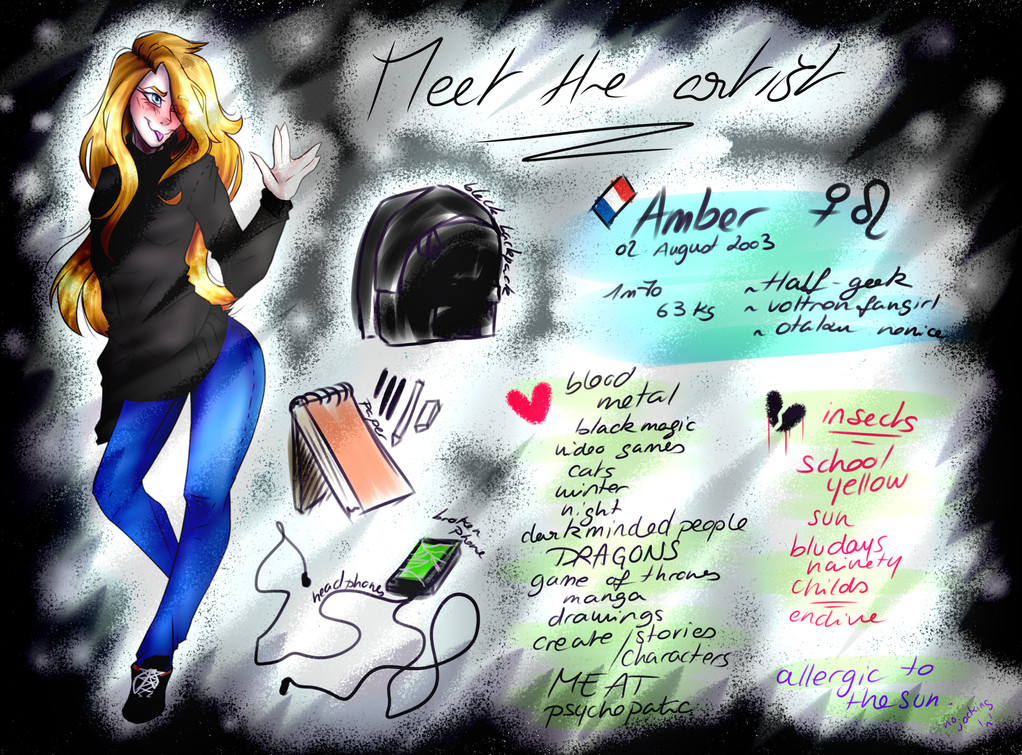 Meet the artist
black backpack
Amber ♀ ♌
02 August 2003
1m70
63 kg
~ Half-geek
~ voltron fangirl
~ otaku novice
paper
broken phone
headphones
blood
metal
black magic
video games
cats
winter
night
dark minded people
DRAGONS
game of thrones
manga
drawings
create / stories
/ characters
MEAT
psychopatic
insects
school
yellow
sun
bludays
naivety
childs
endive
allergic to
the sun.
no
jocking